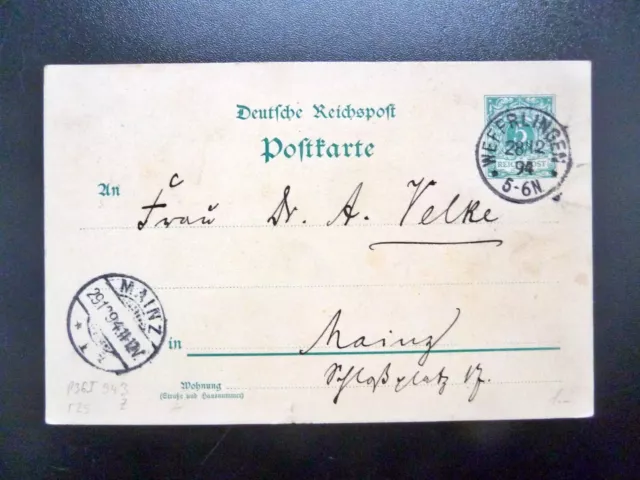 Deutsche Reichspost
Postkarte
5
REICHSPOST
WEFERLINGEN
28 12
94
5-6N
An Frau Dr. A. Velke
MAINZ
29.12.94.11-12V
* T *
in Mainz
Schloßplatz 17.
Wohnung
(Straße und Hausnummer)
P36I 943
T25 Z